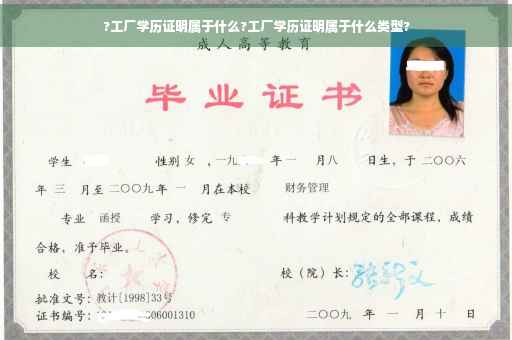 ?工厂学历证明属于什么?工厂学历证明属于什么类型?
成人高等教育
毕业证书
学生 性别 女 ,一九 年 一 月八 日生,于 二〇〇六
年 三 月至 二〇〇九 年 一 月在本校 财务管理
专业 函授 学习,修完 专 科教学计划规定的全部课程,成绩
合格,准予毕业。
校 名: 校(院)长:
批准文号:教计[1998]33号
证书编号: 06001310 二〇〇九 年 一 月 十 日